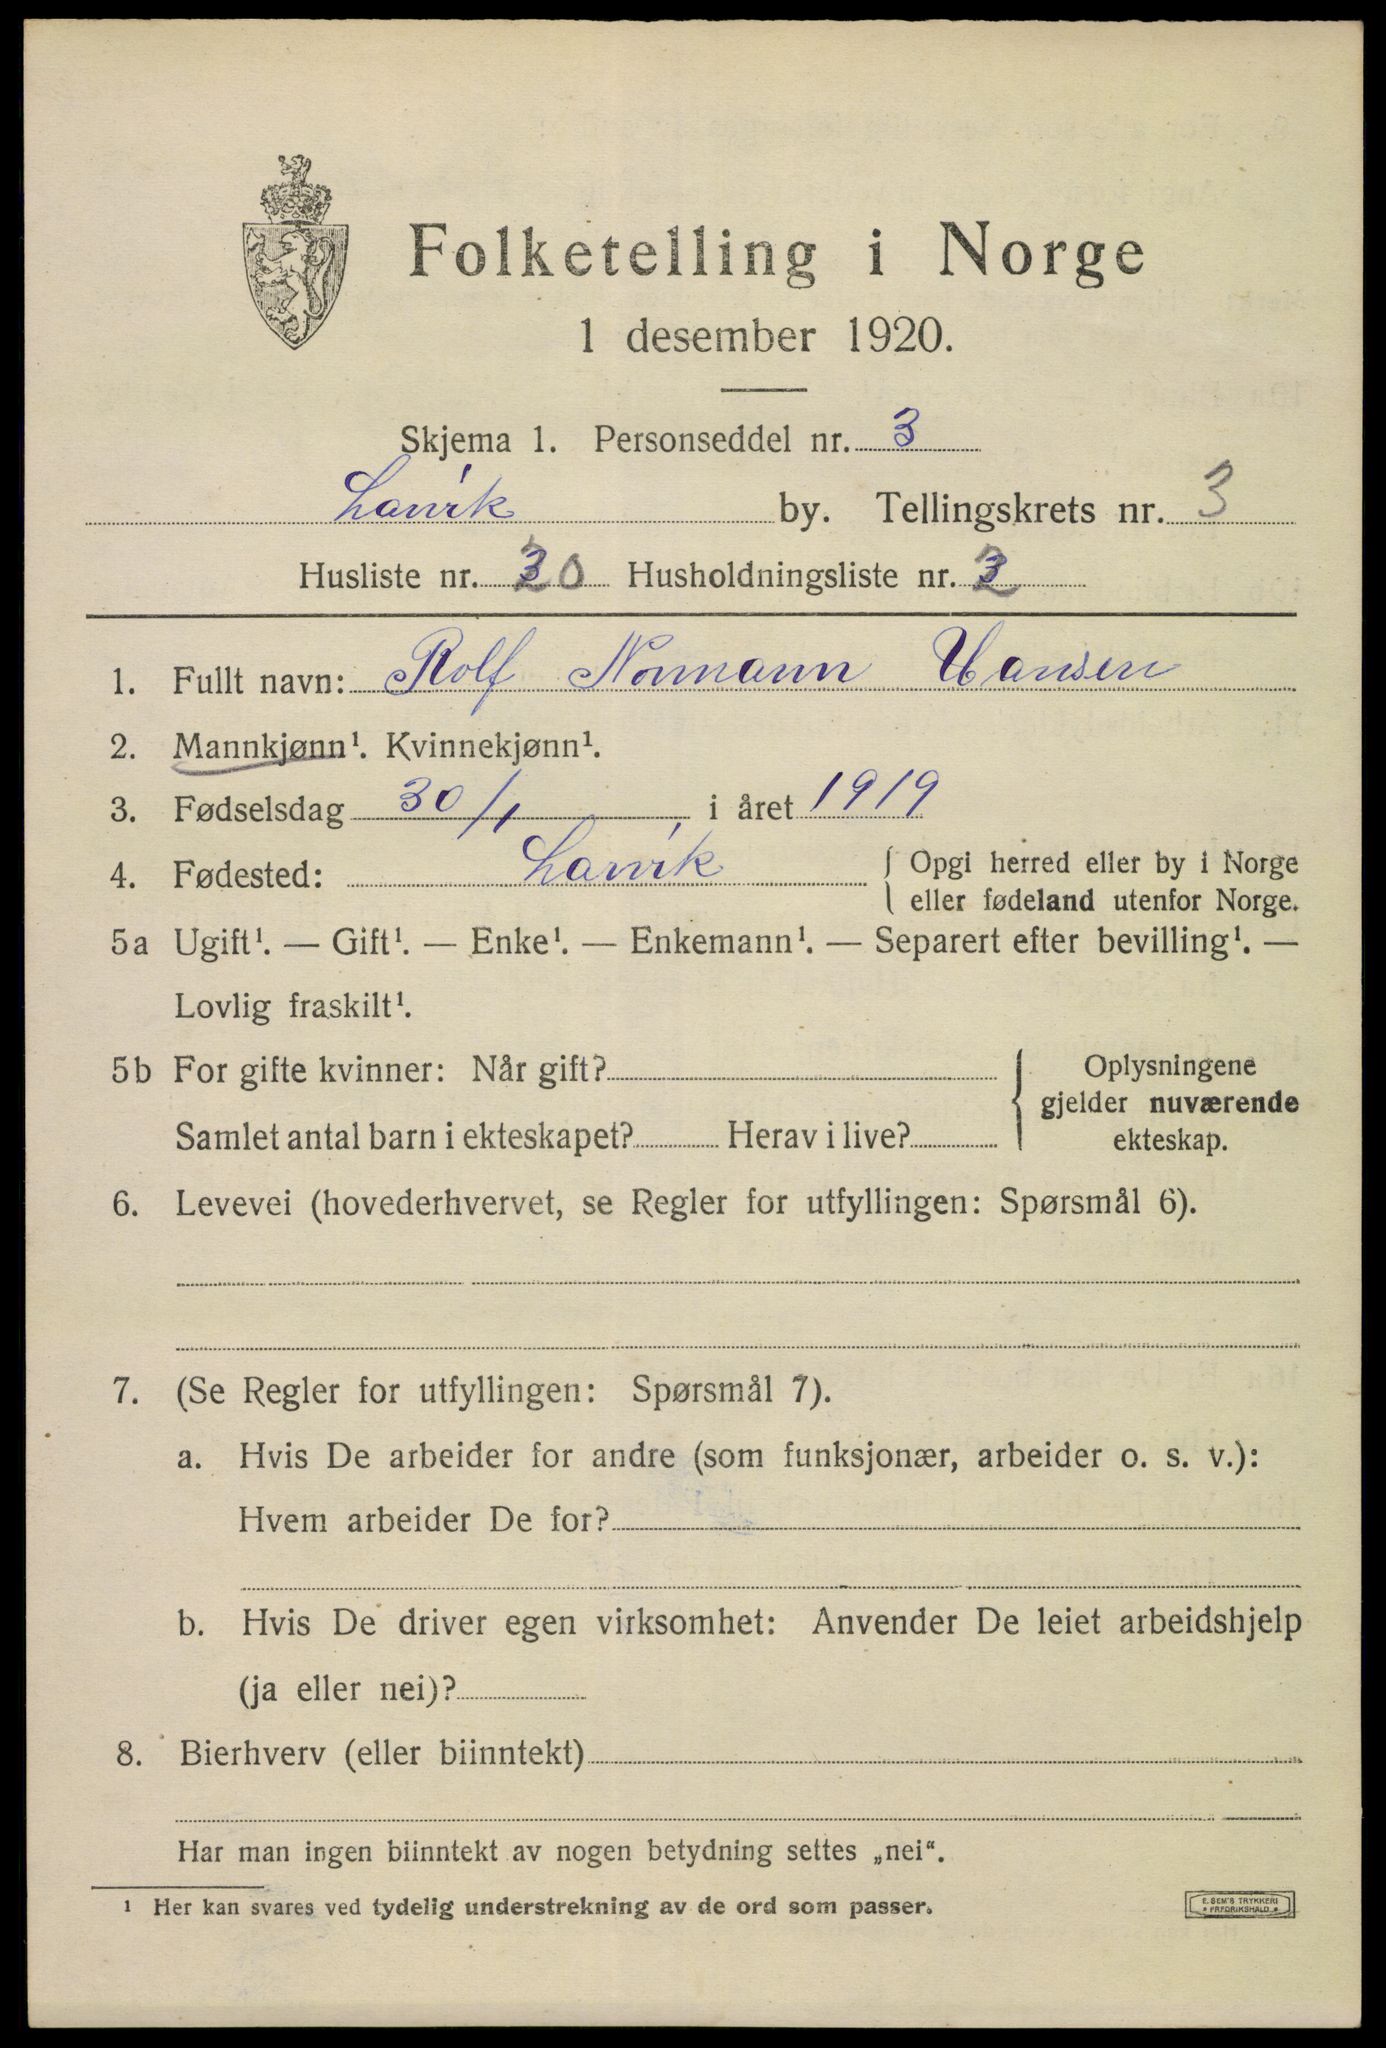 Folketelling i Norge
1 desember 1920.
Skjema 1. Personseddel nr. 3
Larvik by. Tellingskrets nr. 3
Husliste nr. 20 Husholdningsliste nr. 2
1. Fullt navn: Rolf Normann Hansen
2. Mannkjønn¹. Kvinnekjønn¹.
3. Fødselsdag 30/1, i året 1919
4. Fødested: Larvik { Opgi herred eller by i Norge
eller fødeland utenfor Norge.
5a Ugift¹. — Gift¹. — Enke¹. — Enkemann¹. — Separert efter bevilling¹. —
Lovlig fraskilt¹.
5b For gifte kvinner: Når gift? { Oplysningene
gjelder nuværende
Samlet antal barn i ekteskapet? Herav i live? ekteskap.
6. Levevei (hovederhvervet, se Regler for utfyllingen: Spørsmål 6).
7. (Se Regler for utfyllingen: Spørsmål 7).
a. Hvis De arbeider for andre (som funksjonær, arbeider o. s. v.):
Hvem arbeider De for?
b. Hvis De driver egen virksomhet: Anvender De leiet arbeidshjelp
(ja eller nei)?
8. Bierhverv (eller biinntekt)
Har man ingen biinntekt av nogen betydning settes „nei“.
¹ Her kan svares ved tydelig understrekning av de ord som passer.
E. SEM'S TRYKKERI
* FREDRIKSHALD *